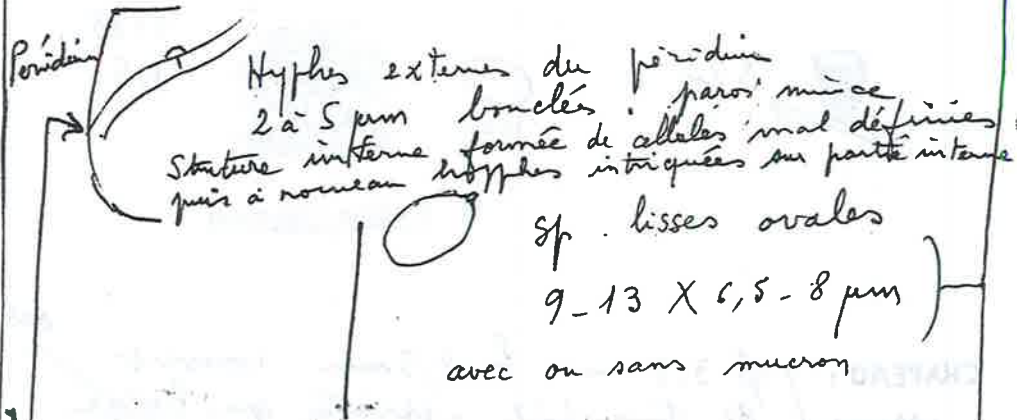 Péridium
Hyphes externes du péridium
2 à 5 µm bouclées paroi mince
Stuture interne formée de cellules mal définies
puis à nouveau hypphes intriquées sur partie interne
sp. lisses ovales
9-13 X 6,5-8 µm
avec ou sans mucron
CHAPEAU